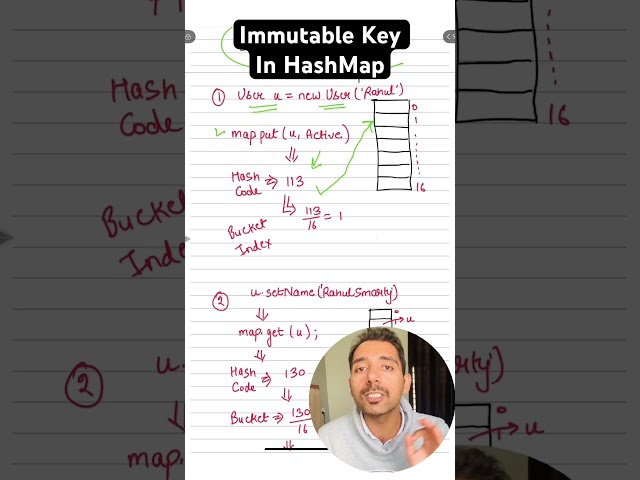 Immutable Key
In HashMap
① User u = new User('Rahul')
map.put (u, Active)
⇓
Hash Code ⇒ 113
⇓
113/16 = 1
Bucket Index
0
1
16
② u.setName('RahulSmarty)
⇓
map.get (u);
⇓
Hash Code ⇒ 130
⇓
Bucket ⇒ 130/16
⇓
0
→ u
Hash
Code
Bucket
Index
16
②
u.
map.
y)
0
→ u